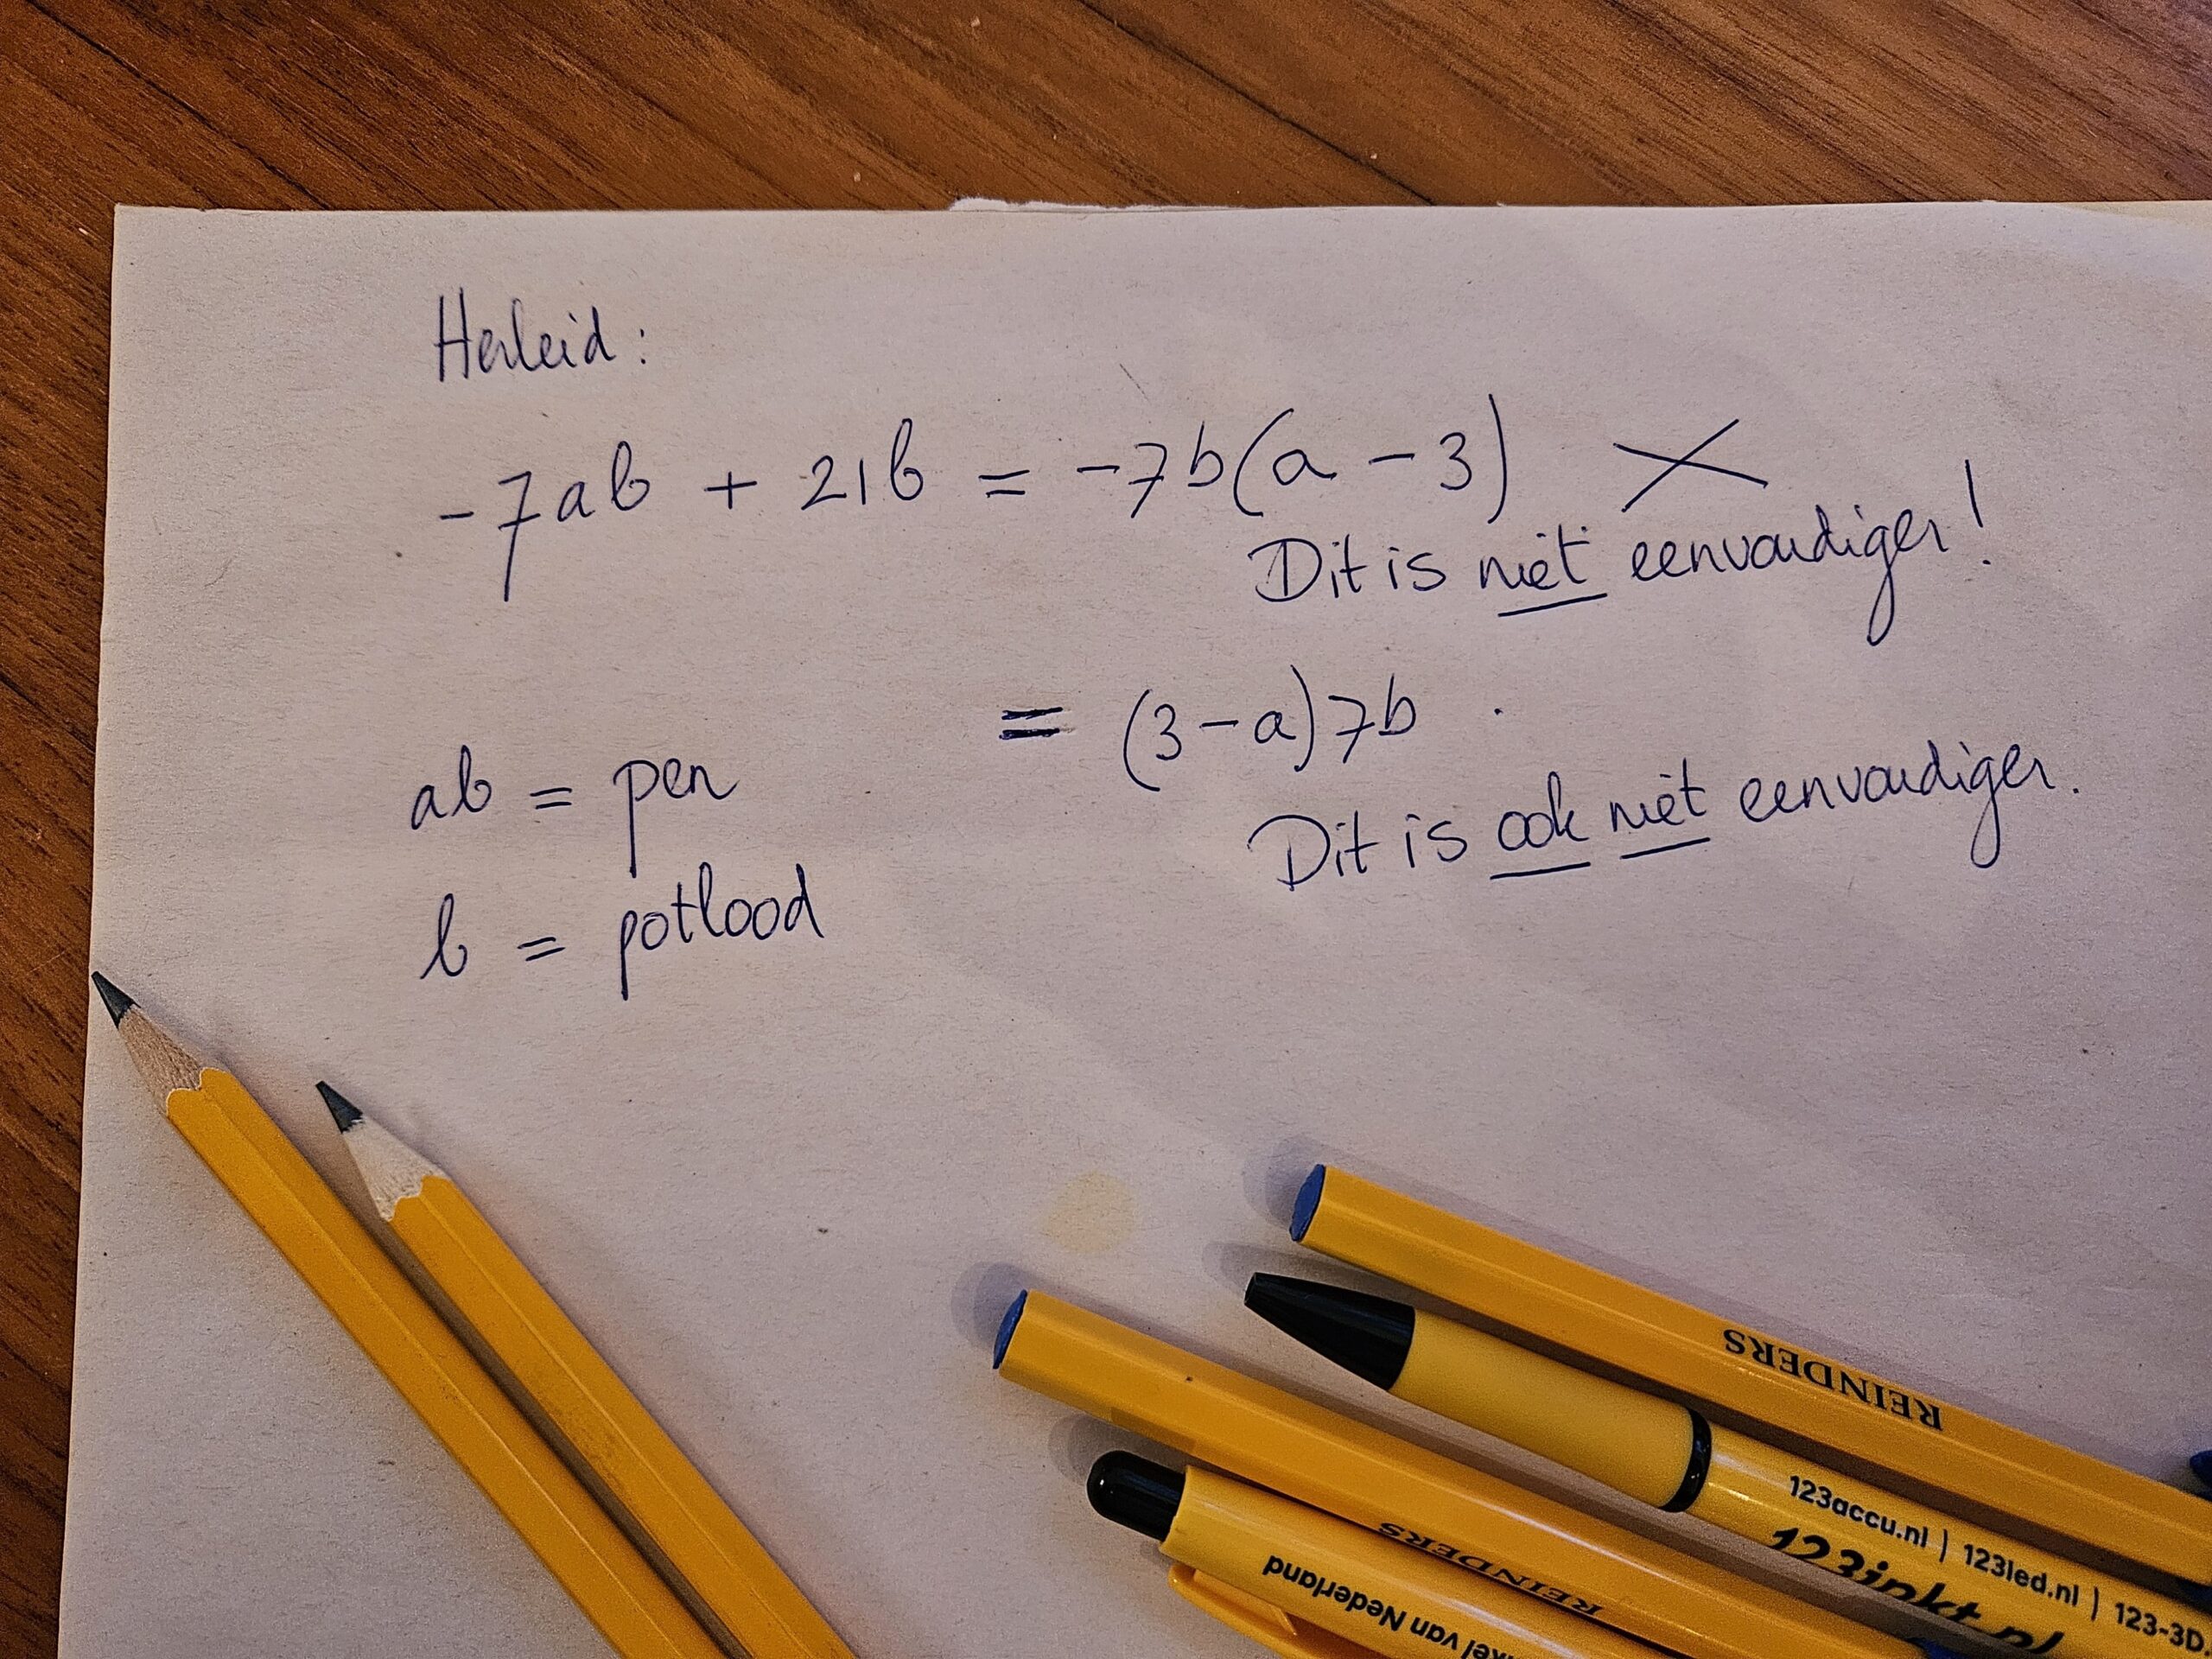 Herleid:
-7ab + 21b = -7b(a - 3) X
Dit is niet eenvoudiger!
= (3 - a)7b
Dit is ook niet eenvoudiger.
ab = pen
b = potlood
REINDERS
123accu.nl | 123led.nl | 123-3D.
123inkt.nl
REINDERS
nkel van Nederland